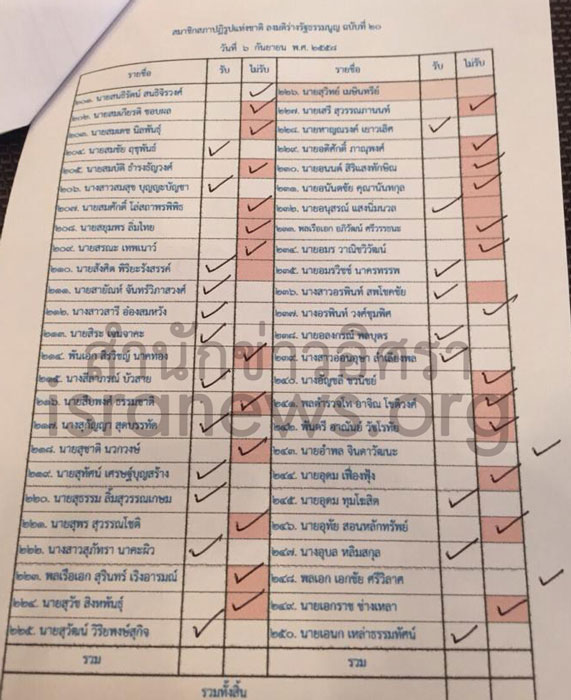 สมาชิกสภาปฏิรูปแห่งชาติ ลงมติร่างรัฐธรรมนูญ ฉบับที่ ๒๐
วันที่ ๖ กันยายน พ.ศ. ๒๕๕๘
รายชื่อ รับ ไม่รับ รายชื่อ รับ ไม่รับ
๒๐๑. นายสนธิรัตน์ สนธิจิรวงศ์ ๒๒๖. นายสุวิทย์ เมษินทรีย์
๒๐๒. นายสมเกียรติ ชอบผล ๒๒๗. นายเสรี สุวรรณภานนท์
๒๐๓. นายสมเดช นิลพันธุ์ ๒๒๘. นายหาญณรงค์ เยาวเลิศ
๒๐๔. นายสมชัย ฤชุพันธุ์ ๒๒๙. นายอดิศักดิ์ ภาณุพงศ์
๒๐๕. นายสมบัติ ธำรงธัญวงศ์ ๒๓๐. นายอนนต์ สิริแสงทักษิณ
๒๐๖. นางสาวสมสุข บุญญะบัญชา ๒๓๑. นายอนันตชัย คุณานันทกุล
๒๐๗. นายสมศักดิ์ โล่สถาพรพิพิธ ๒๓๒. นายอนุสรณ์ แสงนิ่มนวล
๒๐๘. นายสยุมพร ลิ่มไทย ๒๓๓. พลเรือเอก อภิวัฒน์ ศรีวรรธนะ
๒๐๙. นายสรณะ เทพเนาว์ ๒๓๔. นายอมร วาณิชวิวัฒน์
๒๑๐. นายสังศิต พิริยะรังสรรค์ ๒๓๕. นายอมรวิชช์ นาครทรรพ
๒๑๑. นายสายัณห์ จันทร์วิภาสวงศ์ ๒๓๖. นางสาวอรพินท์ สพโชคชัย
๒๑๒. นางสาวสารี อ๋องสมหวัง ๒๓๗. นางอรพินท์ วงศ์ชุมพิศ
๒๑๓. นายสิระ เจนจาคะ ๒๓๘. นายอลงกรณ์ พลบุตร
๒๑๔. พันเอก สิรวิชญ์ นาคทอง ๒๓๙. นางสาวอ่อนอุษา ลำเลียงพล
๒๑๕. นางสีลาภรณ์ บัวสาย ๒๔๐. นางอัญชลี ชวนิชย์
๒๑๖. นายสืบพงศ์ ธรรมชาติ ๒๔๑. พลตำรวจโท อาจิณ โชติวงศ์
๒๑๗. นางสุกัญญา สุดบรรทัด ๒๔๒. พันตรี อาณันย์ วัชโรทัย
๒๑๘. นายสุชาติ นวกวงษ์ ๒๔๓. นายอำพล จินดาวัฒนะ
๒๑๙. นายสุทัศน์ เศรษฐ์บุญสร้าง ๒๔๔. นายอุดม เฟื่องฟุ้ง
๒๒๐. นายสุธรรม ลิ้มสุวรรณเกษม ๒๔๕. นายอุดม ทุมโฆสิต
๒๒๑. นายสุพร สุวรรณโชติ ๒๔๖. นายอุทัย สอนหลักทรัพย์
๒๒๒. นางสาวสุภัทรา นาคะผิว ๒๔๗. นางอุบล หลิมสกุล
๒๒๓. พลเรือเอก สุรินทร์ เริงอารมณ์ ๒๔๘. พลเอก เอกชัย ศรีวิลาศ
๒๒๔. นายสุวัช สิงหพันธุ์ ๒๔๙. นายเอกราช ช่างเหลา
๒๒๕. นายสุวัฒน์ วิริยพงษ์สุกิจ ๒๕๐. นายเอนก เหล่าธรรมทัศน์
รวม รวม
รวมทั้งสิ้น
สำนักข่าวอิศรา
isranews.org